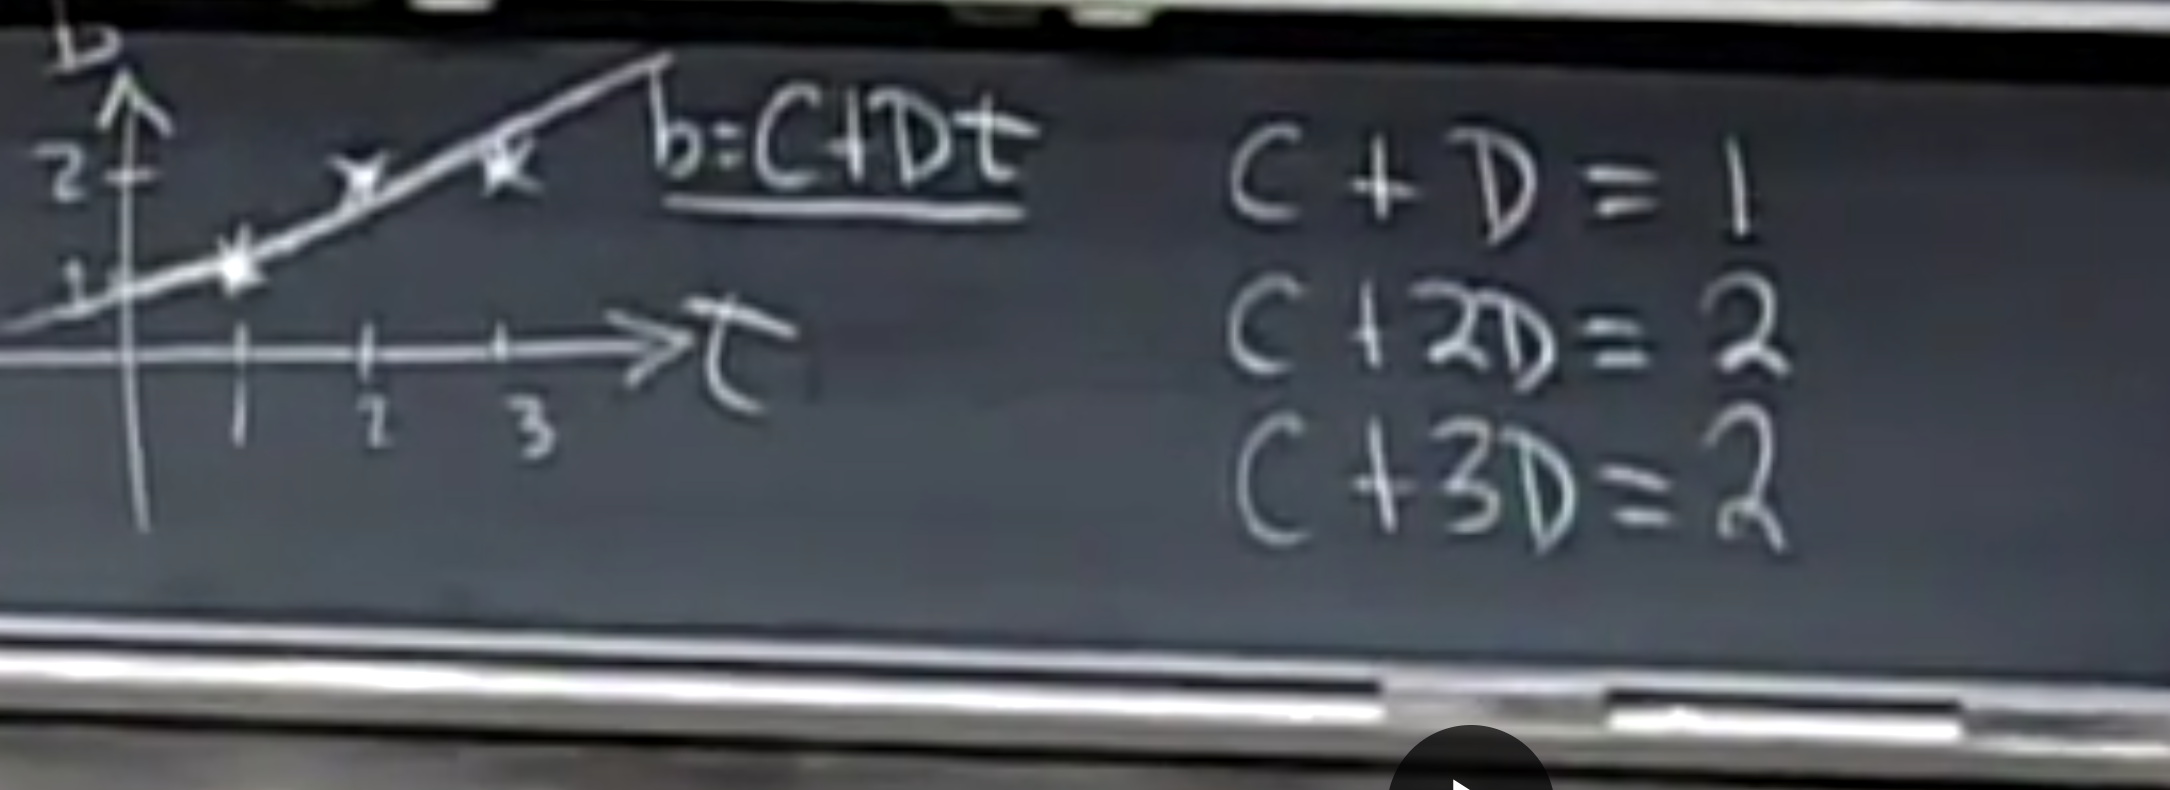 b
2
1
1 2 3
t
b=C+Dt
C+D=1
C+2D=2
C+3D=2